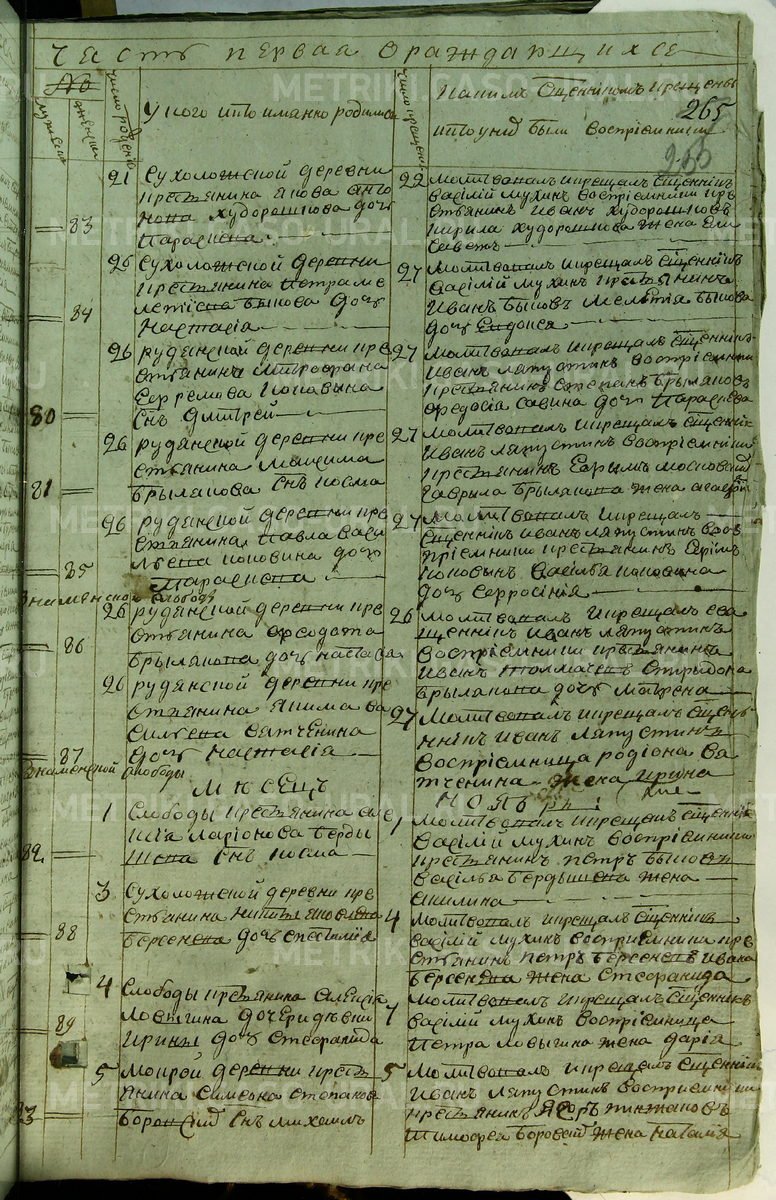 часть первая ораждающихсе
№
мужеска
женска
число рождения
у кого кто имянно родился
число крещения
каким сщенником крещены
и кто у них были восприемники
265
250
83
21
Сухоложской деревни
крестьянина якова анто
нова худорошкова дочь
Параскева
22
молитвовалъ и крещалъ сщеннікъ
василій мухинъ восприемники кре
стьянинъ иванъ худорошковъ
кирила худорошкова жена ели
савета
84
26
Сухоложской деревни
крестьянина петра ме
летіева быкова дочь
настасія
27
молитвовалъ и крещалъ сщеннікъ
василій мухинъ крестьянинъ
иванъ быковъ мелетія быкова
дочь евдокея
80
26
рудянской деревни кре
стьянина митрофана
ефремова коковина
снъ дмитрей
27
молитвовалъ и крещалъ сщеннікъ
иванъ ляпустинъ восприемники
крестьянинъ степанъ брыляковъ
федосія савина дочь параскева
81
26
рудянской деревни кре
стьянина максима
брылякова снъ косма
27
молитвовалъ и крещалъ сщеннікъ
иванъ ляпустинъ восприемники
крестьянинъ ефимъ
гаврила брылякова жена
85
26
рудянской деревни кре
стьянина павла васи
льева коковина дочь
параскева
27
молитвовалъ и крещалъ
сщеннікъ иванъ ляпустинъ восъ
приемники крестьянинъ ефимъ
коковинъ василья коковина
дочь ефросинія
знаменской слободы
86
26
рудянской деревни кре
стьянина федота
брылякова дочь
26
молитвовалъ и крещалъ свя
щеннікъ иванъ ляпустинъ
восприемники крестьянинъ
иванъ толмачевъ спиридона
брылякова дочь матрена
87
26
рудянской деревни кре
стьянина якима ва
сильева вятченина
дочь настасія
27
молитвовалъ и крещалъ сщень
ннікъ иванъ ляпустинъ
восприемница родіона вя
тченина жена ирина
знаменской слободы
мѣсецъ ноябрь
82
1
Слободы крестьянина але
ксія ларіонова берды
шева снъ косма
1
молитвовалъ и крещалъ сщеннікъ
василій мухинъ восприемники
крестьянинъ петръ быковъ
василья бердышева жена
акилина
88
3
Сухоложской деревни кре
стьянина никиты яковлева
берсенева дочь
4
молитвовалъ и крещалъ сщеннікъ
василій мухинъ восприемники кре
стьянинъ петръ берсеневъ ивана
берсенева жена стефанида
89
4
Слободы крестьянина алексія
ловыгина дочери дѣвки
ирины дочь стефанида
7
молитвовалъ и крещалъ сщеннікъ
василій мухинъ восприемница
петра ловыгина жена дарія
83
5
мокрой деревни кресть
янина симеона степанова
боровскихъ снъ михаилъ
5
молитвовалъ и крещалъ сщеннікъ
иванъ ляпустинъ восприемники
крестьянинъ
тимофея боровскихъ жена наталія